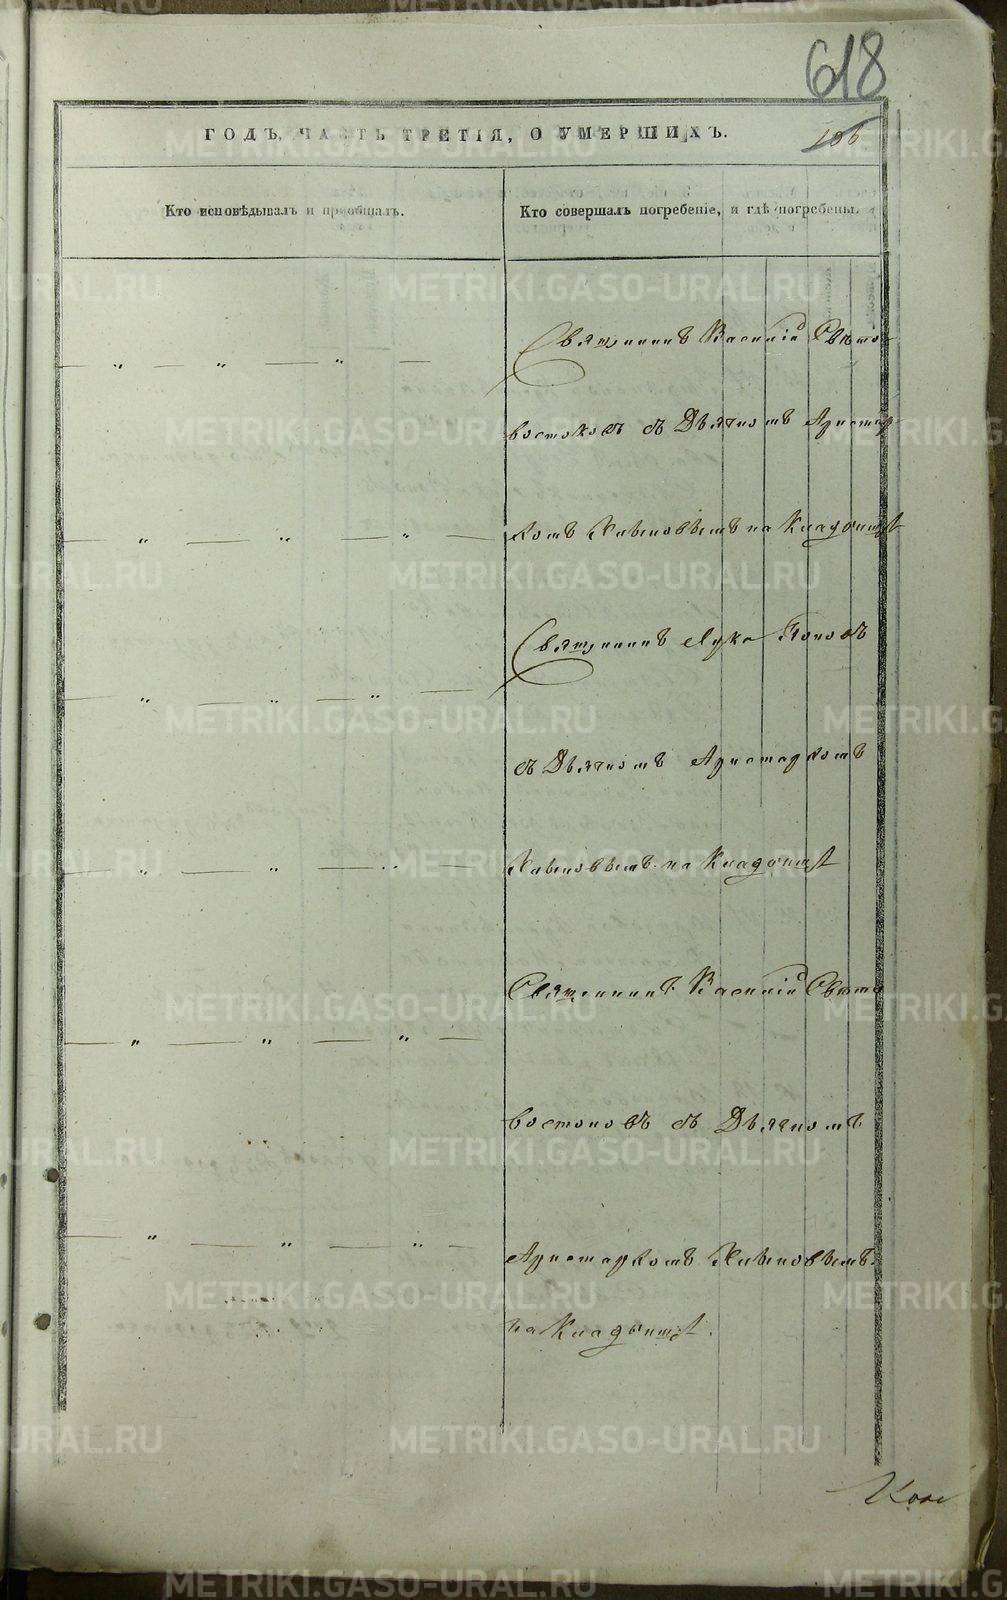 618
ГОДЪ, ЧАСТЬ ТРЕТІЯ, О УМЕРШИХЪ.
106
Кто исповѣдывалъ и пріобщалъ.
Кто совершалъ погребеніе, и гдѣ погребены.
Священникъ Василій Свѣто
востоковъ съ Дьячкомъ Аристар
хомъ на Кладбищѣ
Священникъ Лука Поповъ
съ Дьячкомъ Аристархомъ
на Кладбищѣ
Священникъ Василій Свѣто
востоковъ съ Дьячкомъ
Аристархомъ
на Кладбищѣ.
METRIKI.GASO-URAL.RU